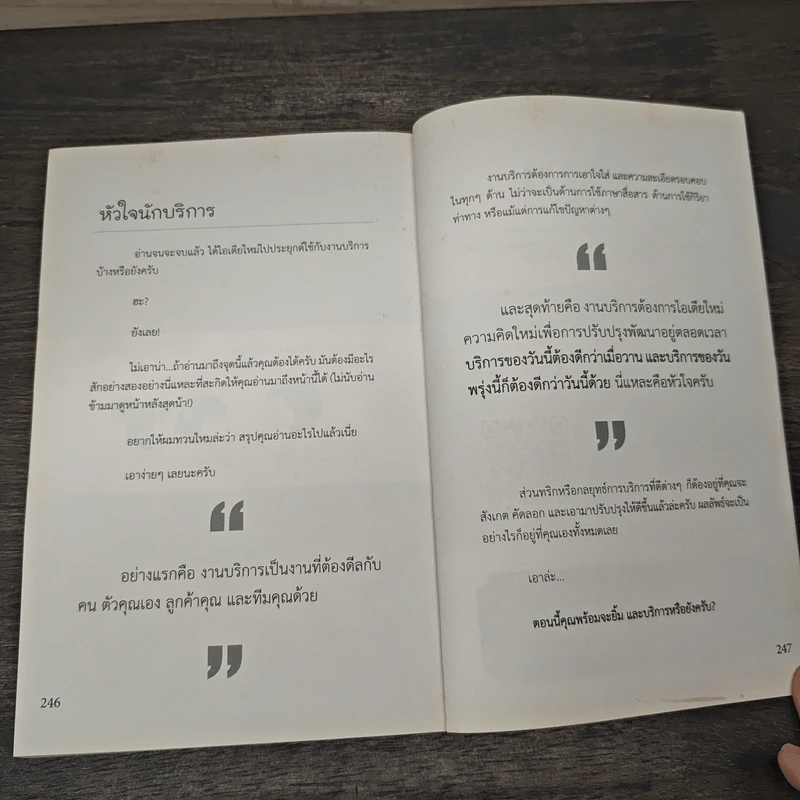 หัวใจนักบริการ
อ่านจนจะจบแล้ว ได้ไอเดียใหม่ไปประยุกต์ใช้กับงานบริการ
บ้างหรือยังครับ
ฮะ?
ยังเลย!
ไม่เอาน่า...ถ้าอ่านมาถึงจุดนี้แล้วคุณต้องได้ครับ มันต้องมีอะไร
สักอย่างสองอย่างนี่แหละที่สะกิดให้คุณอ่านมาถึงหน้านี้ได้ (ไม่นับอ่าน
ข้ามมาดูหน้าหลังสุดน้า!)
อยากให้ผมทวนไหมล่ะว่า สรุปคุณอ่านอะไรไปแล้วเนี่ย
เอาง่ายๆ เลยนะครับ
“
อย่างแรกคือ งานบริการเป็นงานที่ต้องดีลกับ
คน ตัวคุณเอง ลูกค้าคุณ และทีมคุณด้วย
”
246
งานบริการต้องการการเอาใจใส่ และความละเอียดรอบคอบ
ในทุกๆ ด้าน ไม่ว่าจะเป็นด้านการใช้ภาษาสื่อสาร ด้านการใช้กิริยา
ท่าทาง หรือแม้แต่การแก้ไขปัญหาต่างๆ
“
และสุดท้ายคือ งานบริการต้องการไอเดียใหม่
ความคิดใหม่เพื่อการปรับปรุงพัฒนาอยู่ตลอดเวลา
บริการของวันนี้ต้องดีกว่าเมื่อวาน และบริการของวัน
พรุ่งนี้ก็ต้องดีกว่าวันนี้ด้วย นี่แหละคือหัวใจครับ
”
ส่วนทริกหรือกลยุทธ์การบริการที่ดีต่างๆ ก็ต้องอยู่ที่คุณจะ
สังเกต คัดลอก และเอามาปรับปรุงให้ดีขึ้นแล้วล่ะครับ ผลลัพธ์จะเป็น
อย่างไรก็อยู่ที่คุณเองทั้งหมดเลย
เอาล่ะ...
ตอนนี้คุณพร้อมจะยิ้ม และบริการหรือยังครับ?
247